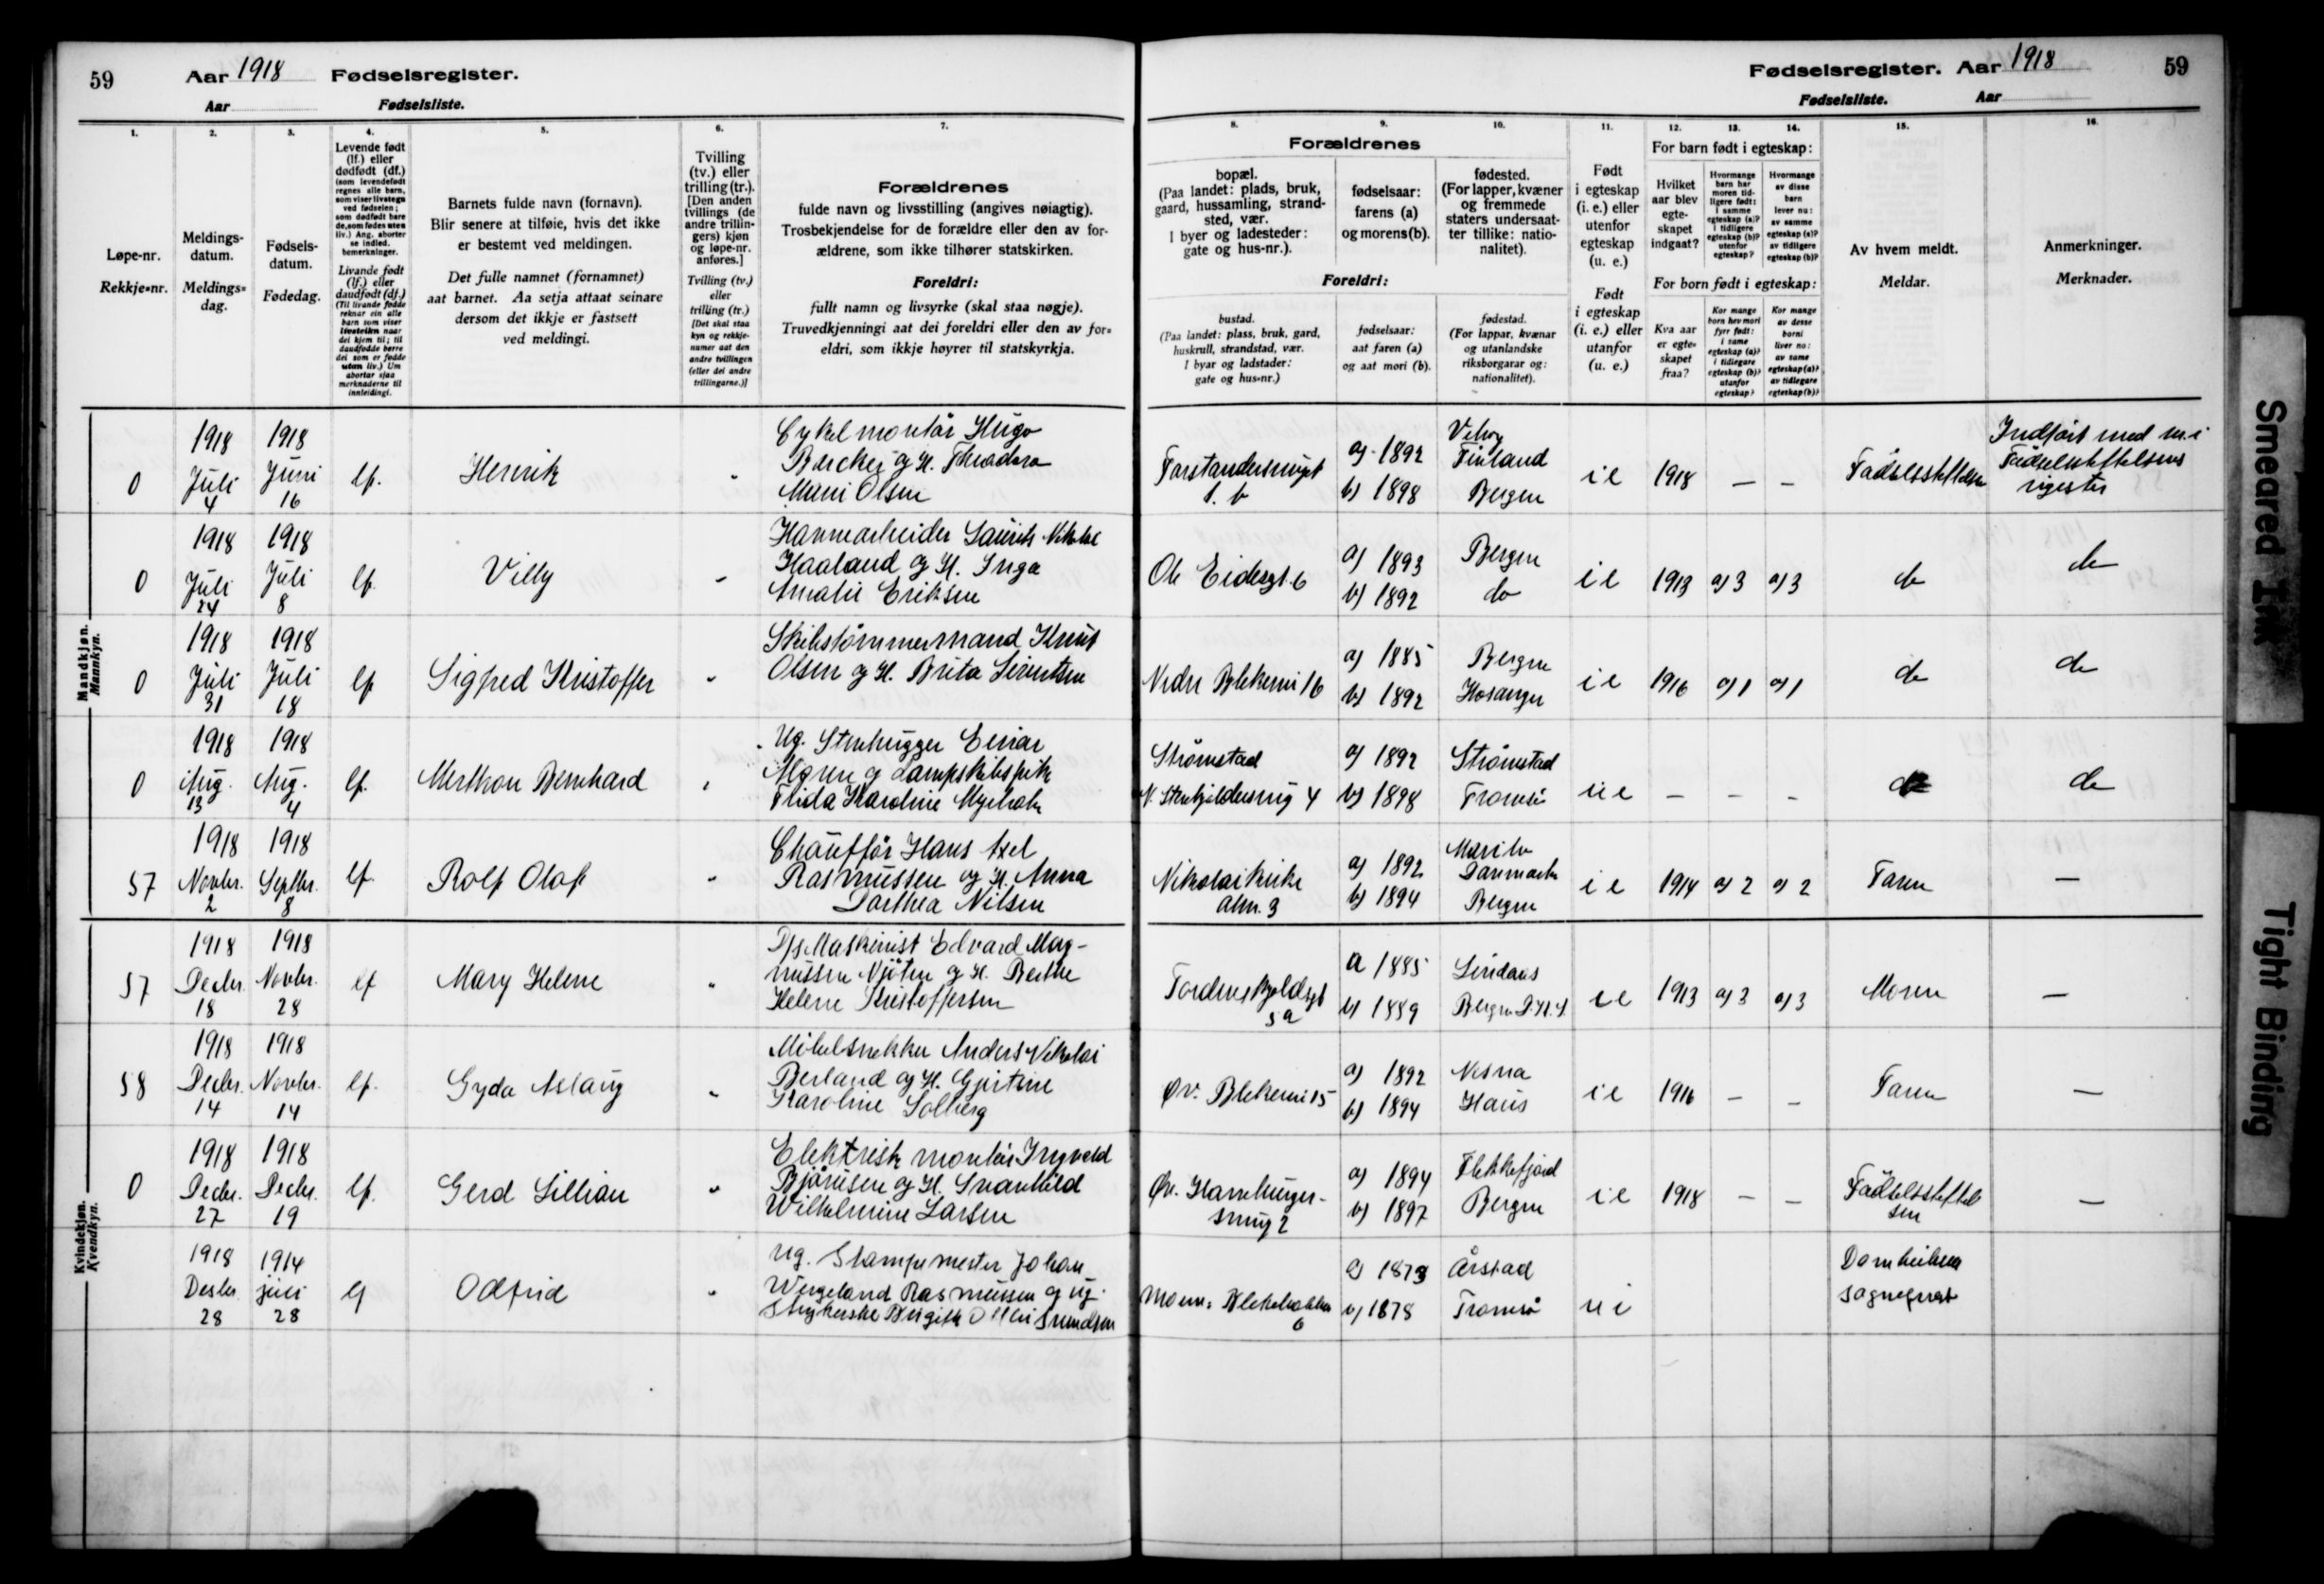 59 Aar 1918 Fødselsregister.
Aar Fødselsliste.
Fødselsregister. Aar 1918 59
Fødselsliste. Aar
1. 2. 3. 4. 5. 6. 7.
Løpe-nr.
Rekkje-nr.
Meldings-
datum.
Meldings-
dag.
Fødsels-
datum.
Fødedag.
Levende født
(lf.) eller
dødfødt (df.)
(som levendefødt
regnes alle barn,
som viser livstegn
ved fødselen;
som dødfødt bare
de, som fødes uten
liv.) Ang. aborter
se indled.
bemerkninger.
Livande født
(lf.) eller
daudfødt (df.)
(Til livande fødde
reknar ein alle
barn som viser
livsteikn naar
dei kjem til; til
daudfødde berre
dei som er fødde
utan liv.) Um
abortar sjaa
merknaderne til
innleidingi.
Barnets fulde navn (fornavn).
Blir senere at tilføie, hvis det ikke
er bestemt ved meldingen.
Det fulle namnet (fornamnet)
aat barnet. Aa setja attaat seinare
dersom det ikkje er fastsett
ved meldingi.
Tvilling
(tv.) eller
trilling (tr.).
[Den anden
tvillings (de
andre trillin-
gers) kjøn
og løpe-nr.
anføres.]
Tvilling (tv.)
eller
trilling (tr.)
[Det skal staa
kyn og rekkje-
numer aat den
andre tvillingen
(eller dei andre
trillingarne.)]
Forældrenes
fulde navn og livsstilling (angives nøiagtig).
Trosbekjendelse for de forældre eller den av for-
ældrene, som ikke tilhører statskirken.
Foreldri:
fullt namn og livsyrke (skal staa nøgje).
Truvedkjenningi aat dei foreldri eller den av for-
eldri, som ikkje høyrer til statskyrkja.
8. 9. 10. 11. 12. 13. 14. 15. 16.
Forældrenes
bopæl.
(Paa landet: plads, bruk,
gaard, hussamling, strand-
sted, vær.
I byer og ladesteder:
gate og hus-nr.).
fødselsaar:
farens (a)
og morens (b).
fødested.
(For lapper, kvæner
og fremmede
staters undersaat-
ter tillike: natio-
nalitet).
Foreldri:
bustad.
(Paa landet: plass, bruk, gard,
huskrull, strandstad, vær.
I byar og ladstader:
gate og hus-nr.)
fødselsaar:
aat faren (a)
og aat mori (b).
fødestad.
(For lappar, kvænar
og utanlandske
riksborgarar og:
nationalitet).
Født
i egteskap
(i. e.) eller
utenfor
egteskap
(u. e.)
Født
i egteskap
(i. e.) eller
utanfor
(u. e.)
For barn født i egteskap:
Hvilket
aar blev
egte-
skapet
indgaat?
Hvormange
barn har
moren tid-
ligere født:
i samme
egteskap (a)?
i tidligere
egteskap (b)?
utenfor
egteskap?
Hvormange
av disse
barn
lever nu:
av samme
egteskap (a)?
av tidligere
egteskap (b)?
For born født i egteskap:
Kva aar
er egte-
skapet
fraa?
Kor mange
born hev mori
fyrr født:
i same
egteskap (a)?
i tidlegare
egteskap (b)?
utanfor
egteskap?
Kor mange
av desse
borni
liver no:
av same
egteskap (a)?
av tidlegare
egteskap (b)?
Av hvem meldt.
Meldar.
Anmerkninger.
Merknader.
Mandkjøn.
Mannkyn.
0 1918 Juli 4 1918 Juni 16 lf. Henrik " Cykelmontør Hugo
Bäcker og H.
Olsen
1. b a) 1892 Finland
b) 1898 Bergen i e 1918 — — Fødselsstiftelsen
Indført med nr. i
Fødselsstiftelsens
register
0 1918 Juli 24 1918 Juli 8 lf. Villy " Havnearbeider Laurits Nikolai
Haaland og H. Inga
Amalie Eriksen
Ole Eidesgt. 6 a) 1893 Bergen
b) 1892 do i e 1913 a) 3 a) 3 do do
0 1918 Juli 31 1918 Juli 18 lf Sigfred Kristoffer " Skibstømmermand Knut
Olsen og H. Brita Sivertsen
Nedre Blekevei 16 a) 1885 Bergen
b) 1892 Hosanger i e 1916 a) 1 a) 1 do do
0 1918 Aug. 13 1918 Aug. 4 lf. Merthon Bernhard " Ug. Stenhugger Einar
Moren og Dampskibspike
Karoline
Strømstad a) 1892 Strømstad
4 b) 1898 Tromsø u e — — — do do
57 1918 Novbr. 2 1918 Septbr. 8 lf. Rolf Olaf " Chauffør Hans Axel
Rasmussen og H. Anna
Dorthea Nilsen
Nikolaikirke
alm. 3 a) 1892 Maribo
Danmark
b) 1894 Bergen i e 1914 a) 2 a) 2 Faren —
Kvindekjøn.
Kvendkyn.
57 1918 Decbr. 18 1918 Novbr. 28 lf Mary Helene " D/s Maskinist Edvard Mag-
nussen Njøten og H. Berthe
Helene Kristoffersen
Tordenskjoldsgt
5 a a 1885 Lindaas
b) 1889 Bergen i e 1913 a) 3 a) 3 Moren —
58 1918 Decbr. 14 1918 Novbr. 14 lf. Gyda Aslaug " Møbelsnekker Anders Nikolai
Berland og H. Gjertine
Karoline Solberg
Øv. Blekevei 15 a) 1892 Nesna
b) 1894 Haus i e 1916 — — Faren —
0 1918 Decbr. 27 1918 Decbr. 19 lf. Gerd Lillian " Elektrisk montør Ingvald
Bjørnsen og H. Svanhild
Wilhelmine Larsen
Øv. Hamburger-
smug 2 a) 1894 Flekkefjord
b) 1897 Bergen i e 1918 — — Fødselsstiftel
sen —
1918 Desbr 28 1914 juli 28 lf Odfrid " ug. Stampemester Johan
Wergeland Rasmussen og ug.
Strykerske Birgitte
6 a) 1873 Årstad
b) 1878 Tromsø u i Domkirkens
sogneprest
Smeared Ink
Tight Binding